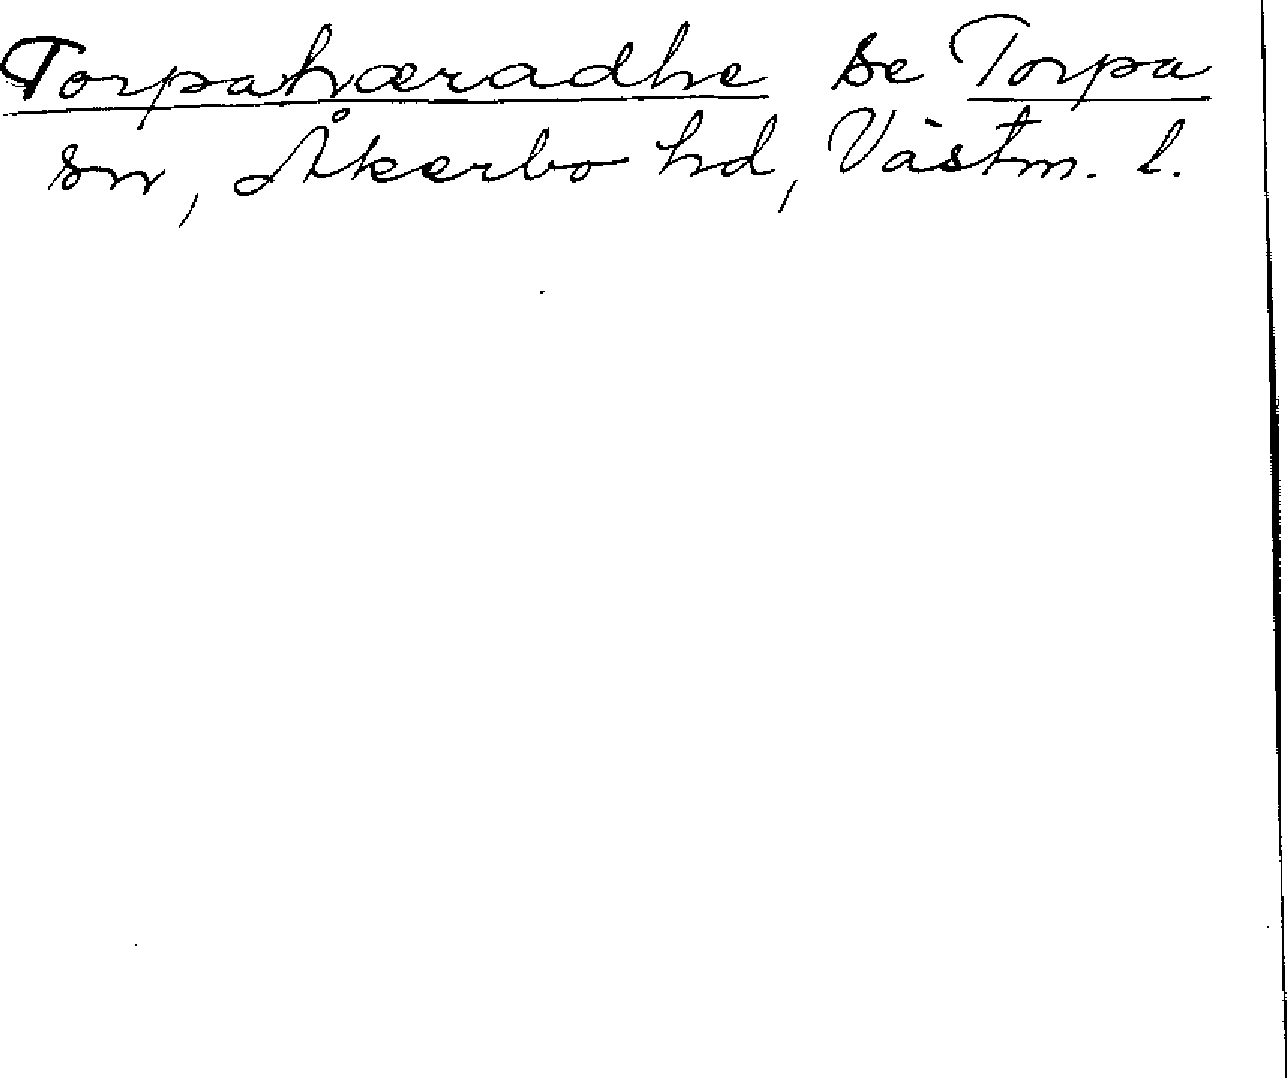 Torpahæradhe se Torpa
sn, Åkerbo hd, Västm. l.